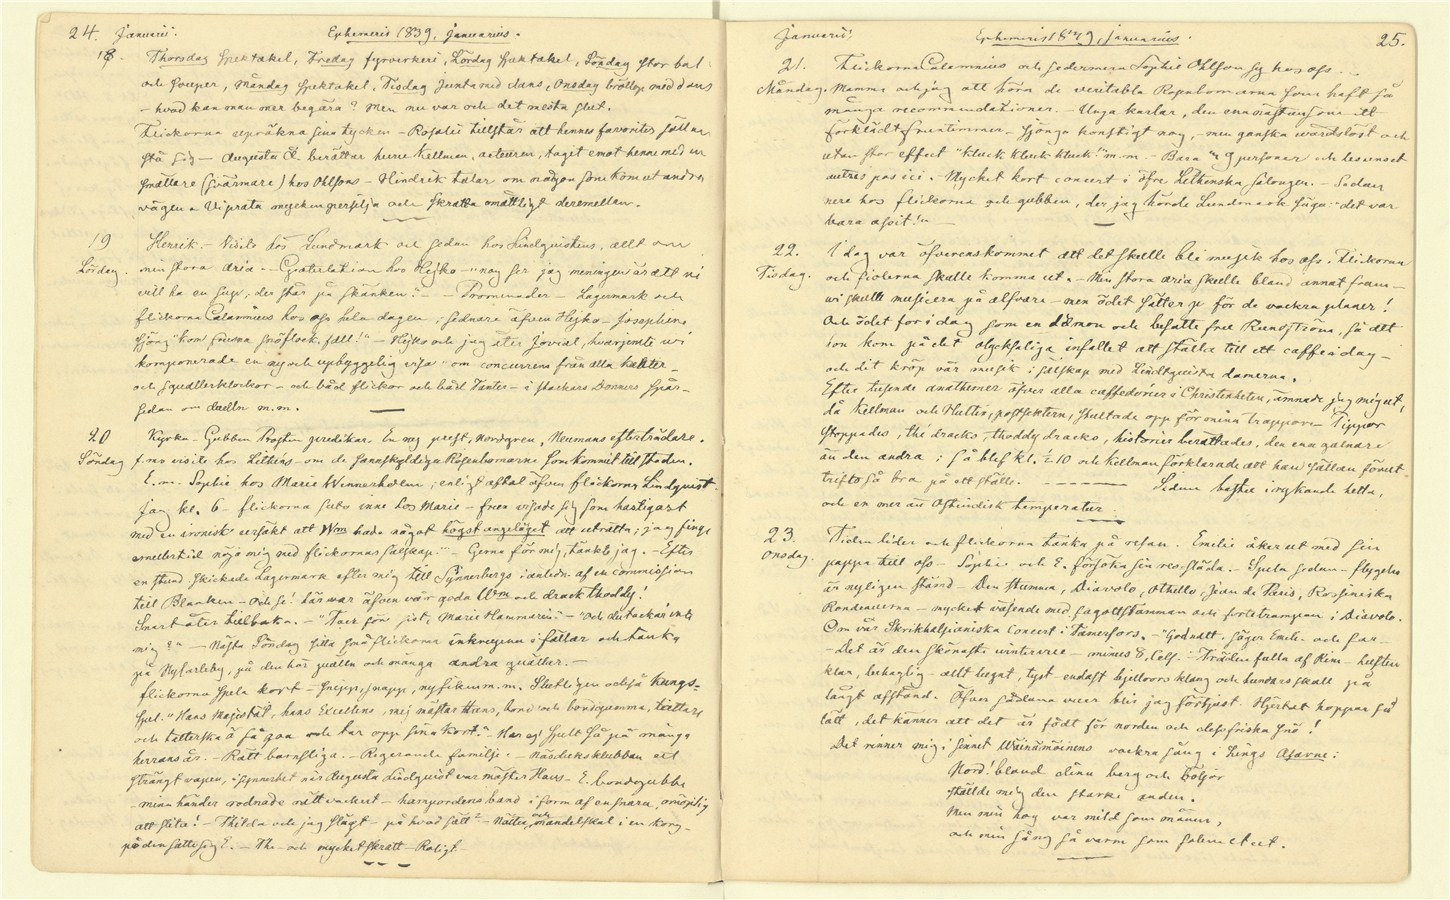 24. Januarii.
Ephemeris 1839, Januarius.
18. Thorsdag spektakel, Fredag fyrverkeri, Lördag spektakel, Söndag stor bal
och souper, Måndag spektakel, Tisdag Junta med dans, Onsdag bröllop med dans
– hvad kan man mer begära? Men nu var och det mesta slut.
Flickorna uppräkna sina tycken – Rosalie tillstår att hennes favoriter sällan
stå sig – Augusta L. berättar huru Kellman, acteuren, taget emot henne med en
smällare (svärmare) hos Ohlsons – Hindrik talar om någon som kom ut andra
vägen. Vi prata mycken persilja och skratta omåttligt deremellan.
19 Henrik – Visit hos Lundmark och sedan hos Lindquistens, allt om
Lördag. min stora aria. – Gratulation hos Hejko – "nog ser jag meningen är att ni
vill ha en sup, der står på skänken!" – Promenader – Lagermark och
flickorna Calamnius hos oss hela dagen; sednare äfven Hejko – Josephine
sjöng "kom friska snöflock, fall!" – Hejko och jag äter jovial, hvarjemte vi
komponerade en ny och upbyggelig visa om concurrens från alla
och squallerklockor – och båd flickor och båd tanter – i stackars Donners
sedan om duelln m.m.
20 Kyrka – Gubben Prosten predikar. En ny prest, Nordgren, Neumans efterträdare.
Söndag f.m. visite hos Lithéns – om de sanskyldiga Rosenbomarne som kommit till staden.
E.m. Sophie hos Marie Wennerholm; enligt aftal äfven flickorna Lindquist.
Jag kl. 6 – flickorna suto inne hos Marie – frun visade sig som hastigast
med en ironisk ursäkt att Wm hade något högst angeläget att uträtta; jag finge
emellertid nöja mig med flickornas sällskap." – Gerna för mig, tänkte jag. – Efter
en stund skickade Lagermark efter mig till Synnerbergs i anledn. af en commission
till Blanken – Och se! där var äfven vår goda Wm och drack thoddy!
Snart åter tillbaka. – "Tacr för sist, Marie Hammarin" – "Och du tackar inte
mig?" – Nästa Söndag sitta små flickorna inkrupna i fällar och tänka
på Nykarleby, på den här qvälln och många andra qvällar. –
flickorna spela kort – snipp, snapp, nysikum m.m. Slutligen också kungs-
spel. "Hans Majestät, hans Excellens, mej mästar Hans, bond och bondqvinna, tattare
och tatterska å få gaa och tar opp sina kort". Har ej spelt så på många
herrans år. – Rätt barnsliga. – Regerande familje. – Näsduksklubban ett
strängt vapen, i synnerhet när Augusta Lindquist var mäster Hans – E. bondgubbe
– mina händer rodnade rätt vackert – hampordens band i form af en snara, omöjlig
att slita! – Thilda och jag slagt – på hvad sätt? – Nötter och mandelskal i en korg –
på den satte sig E. – The – och mycket skratt – Roligt –
Januarii.
Ephemeris 1839, Januarius.
25.
21. Flickorna Calamnius och sedermera Sophie Ohlson sy hos oss.
Måndag. Mamma och jag att höra de veritabla Rosenbomarna som haft så
många recommendationer. – Unga karlar, den ena nästan som ett
förklädt fruntimmer. Sjöngo konstigt nog, – men ganska värdslöst och
utan stor effect "Kluck kluck kluck!" m.m. – Bara 29 personer och lessenset
autres pas ici. – Mycket kort concert i öfre Lithénska salongen. – Sedan
nere hos flickorna och gubben, der jag hörde Lundmark säga: "det var
bara apit!" –
22. I dag var öfverenskommet att det skulle bli musik hos oss. Flickorna
Tisdag. och fiolerna skulle komma ut. – Min stora aria skulle bland annat fram –
vi skulle musicera på alfvare – men ödet sätter p för de vackra planer!
Och ödet for i dag som en dämon och besatte fru Rundström, så att
hon kom på det olycksaliga infallet att ställa till ett caffé i dag –
och dit kröp vår musik i sällskap med Lindquistska damerna.
Efter tusende anathemer öfver alla cafféedörier i Christenheten, ämnade jag mig ut,
då Kellman och Hultin, postsektern, skuttade opp för mina trappor – Pippor
stoppades, thé dracks, thoddy dracks, historier berättades, den ena galnare
än den andra; så blef kl. ½ 10 och Kellman förklarade att han sällan förut
trifts så bra på ett ställe. – – – – – – Sedan bastu i rykande hetta,
och en mer än Ostindisk temperatur.
23. Tiden lider och flickorna tänka på resan. Emilie åker ut med sin
Onsdag. pappa till oss – Sophie och E. försöka sin res-släda. – Spela sedan – flygeln
är nyligen stämd – Den Stumma, Diavolo, Othello, Jean de Paris, Rossiniska
Rondeauerna – mycket väsende med fagottstämman och fortetrampan i Diavolo.
Om vår Skrikhalsianiska Concert i Tamerfors. – "Godnatt, säger Emilie och far –
– Det är den skönaste vinterväder – minus 8, Cels. – Träden fulla af Rim – luften
klar, behaglig – allt lugnt, tyst – endast bjellrors klang och hundars skall på
långt afstånd. Öfver sådana väder blir jag förtjust. Hjertat hoppar så
lätt, det känner att det är född för norden och dess friska snö!
Det rinner mig i sinnet Wäinämöinens vackra sång i Lings Asarne:
Nord! bland dina berg och böljor
ställde mig den starke anden.
Men min håg var mild som månen,
och min sång så varm som solen eldet.